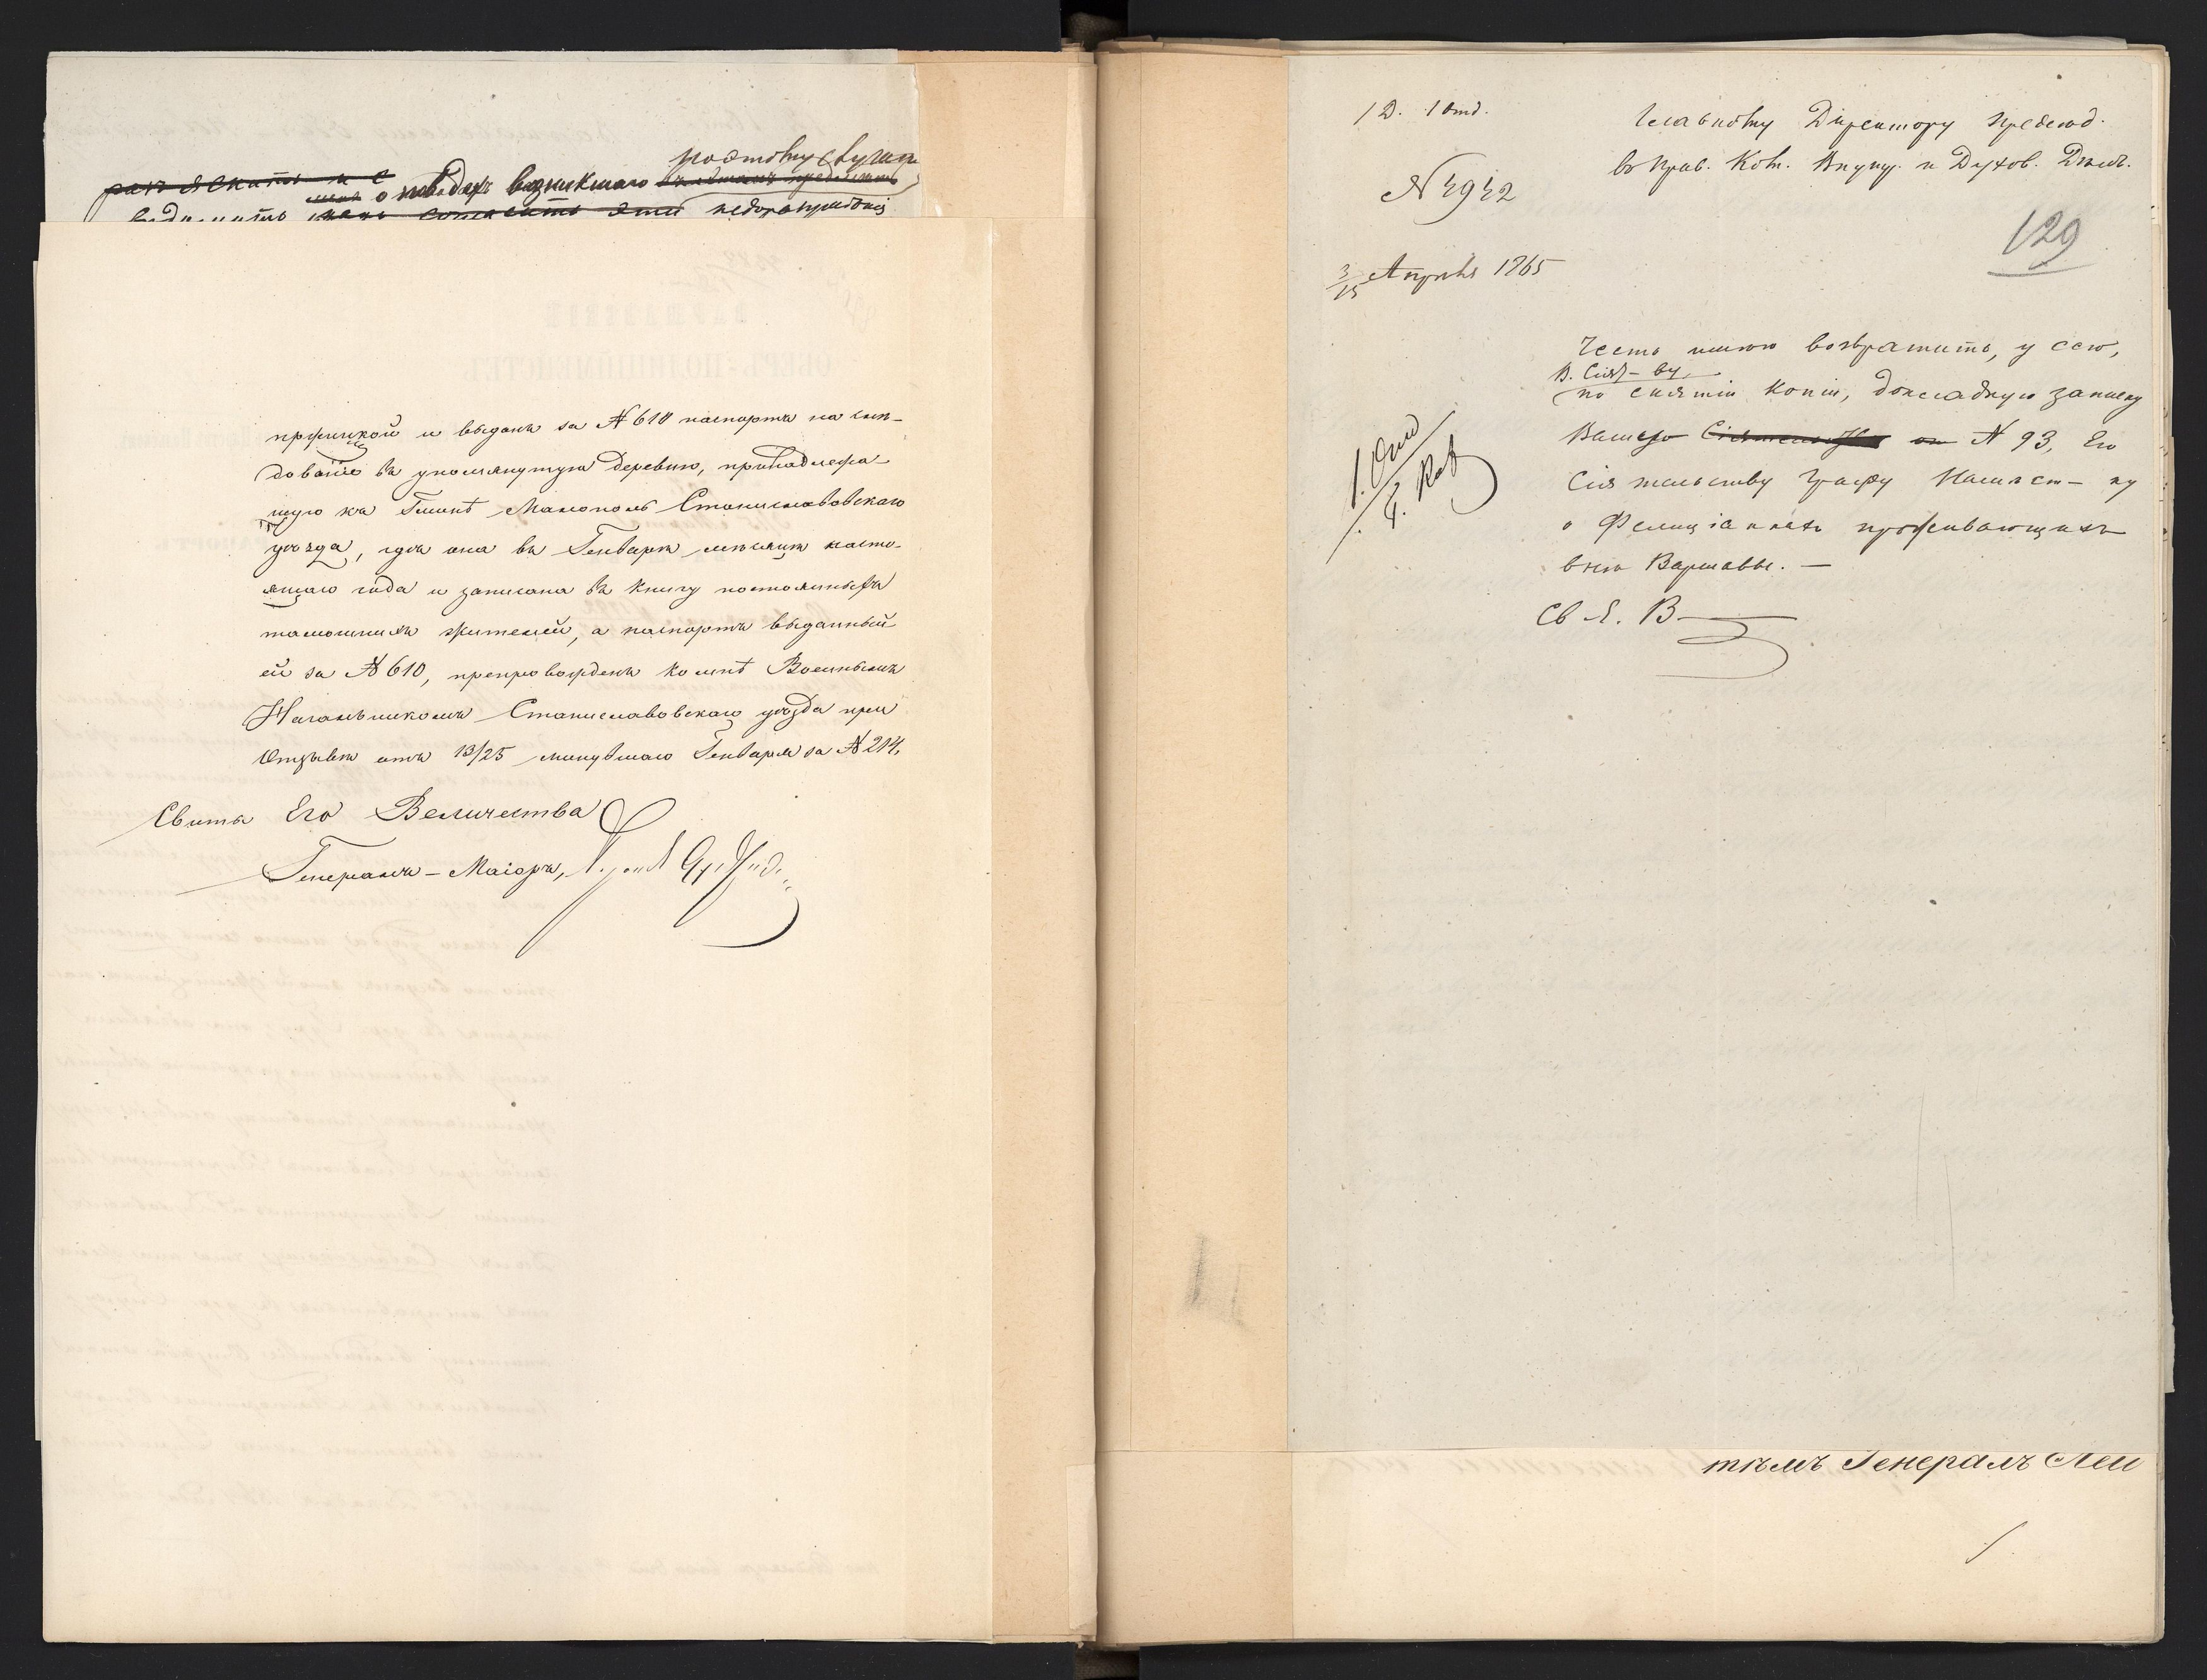 поэтому
о поводахъ возникшаго
недоразумѣнія
пружинкой и выданъ за № 610 паспортъ на слѣ-
дованіе въ упомянутую деревню, принадлежа-
щую къ Гминѣ Макополь Станиславовскаго
уѣзда, гдѣ она въ Генварѣ мѣсяцѣ насто-
ящаго года и записана въ книгу постоянныхъ
тамошнихъ жителей, а паспортъ выданный
ей за № 610, препровожденъ ко мнѣ Военнымъ
Начальникомъ Станиславовскаго уѣзда при
Отзывѣ отъ 13/25 минувшаго Генваря за № 214.
Свиты Его Величества
Генералъ-Маіоръ,
1 Д. 1 Отд.
№ 4942
3/15 Апрѣля 1865
Главному Директору Предсѣд.
въ Прав. Ком. Внутр. и Духов. Дѣлъ.
129
Честь имѣю возвратить, у сего,
В. Сіят-ву
по снятіи копіи, докладную записку
Вашего Сіятельства № 93, Его
Сіятельству Графу Намѣст-ку
о Фелиціанкахъ проживающихъ
внѣ Варшавы. —
Св. Е. В.
тѣмъ Генералъ Лей